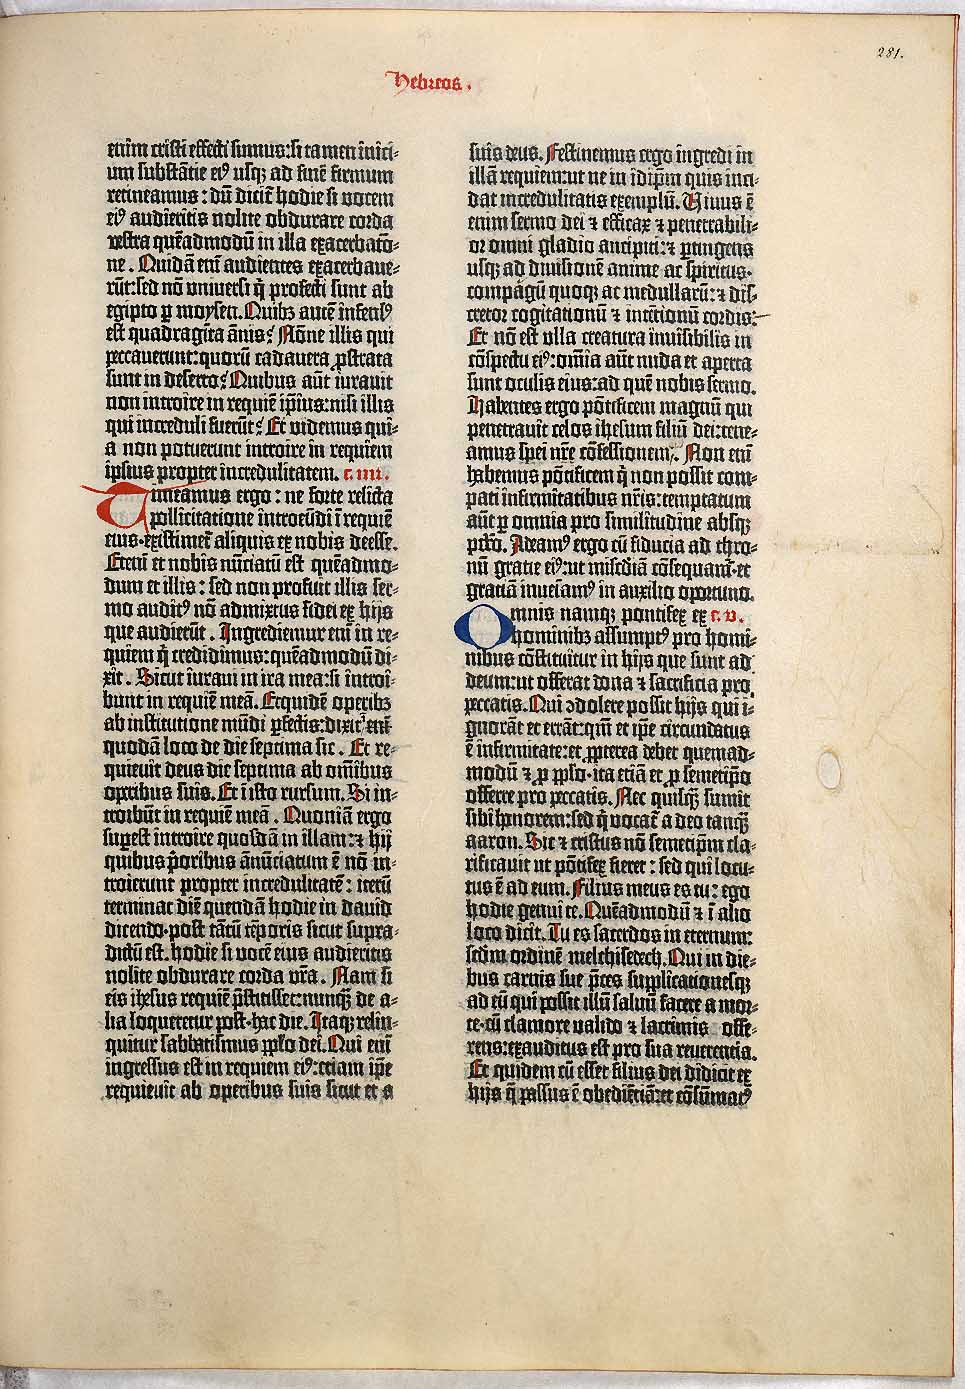 281.
Hebreos.
enim cristi effecti sumus: si tamen inici-
um substātie eiꝰ usqꝫ ad finē firmum
retineamus: dū dicit̄ hodie si vocem
eiꝰ audieritis nolite obdurare corda
vestra quēadmodū in illa exacerbatō-
ne. Quidā enī audientes exacerbave-
rūt: sed nō universi q̄ profecti sunt ab
egipto ꝑ moysen. Quibꝫ autē infensꝰ
est quadragīta ānis? Nōne illis qui
peccaverunt: quorū cadavera ꝓstrata
sunt in deserto? Quibus aūt iuravit
non introire in requiē ip̄ius: nisi illis
qui increduli fuerūt? Et videmus qui-
a non potuerunt introire in requiem
ipsius propter incredulitatem. c. iiii.
Timeamus ergo: ne forte relicta
pollicitatione introeūdi ī requiē
eius· existimet̄ aliquis ex nobis deesse.
Etenī et nobis nūciatū est quēadmo-
dum et illis: sed non profuit illis ser-
mo auditꝰ nō admixtus fidei ex hijs
que audierūt. Ingrediemur enī in re-
quiem q̄ credidimus: quēadmodū di-
xit. Sicut iuravi in ira mea: si introi-
bunt in requiē meā. Et quidē operibꝫ
ab institutione mūdi ꝑfectis: dixit enī
quodā loco de die septima sic. Et re-
quievit deus die septima ab om̄ibus
operibus suis. Et ī isto rursum. Si in-
troibūt in requiē meā. Quoniā ergo
suꝑest introire quosdā in illam: ⁊ hij
quibus p̄oribus ānūciatum ē nō in-
troierunt propter incredulitatē: iterū
terminat diē quendā hodie in david
dicendo· post tātū tēporis sicut supra-
dictū est. hodie si vocē eius audieritis
nolite obdurare corda vr̄a. Nam si
eis ihesus requiē p̄stitisset: nunqꝫ̄ de a-
lia loqueretur post· hac die. Itaqꝫ relin-
quitur sabbatismus pp̄lo dei. Qui enī
ingressus est in requiem eiꝰ: etiam ip̄e
requievit ab operibus suis sicut et a
suis deus. Festinemus ergo ingredi in
illā requiem: ut ne in idip̄m quis inci-
dat incredulitatis exemplū. Vivus ē
enim sermo dei ⁊ efficax ⁊ penetrabili-
or omni gladio ancipiti: ⁊ ꝑtingens
usqꝫ ad divisionē anime ac spiritus·
compāgū quoqꝫ ac medullarū: ⁊ dis-
cretor cogitationū ⁊ intētionū cordis:
Et nō est ulla creatura invisibilis in
cōspectu eiꝰ: om̄ia aūt nuda et aperta
sunt oculis eius: ad quē nobis sermo.
Habentes ergo pōtificem magnū qui
penetravit celos ihesum filiū dei: tene-
amus spei nr̄e cōfessionem. Non enī
habemus pōtificem q̄ non possit com-
pati infirmitatibus nr̄is: temptatum
aūt ꝑ omnia pro similitudine absqꝫ
pctō. Adeamꝰ ergo cū fiducia ad thro-
nū gratie eiꝰ: ut mis̄diā cōsequam̄· et
gratiā inveīamꝰ in auxilio oportuno.
Omnis namqꝫ pontifex ex c. v.
hominibꝫ assumptꝰ pro homi-
nibus cōstituitur in hijs que sunt ad
deum: ut offerat dona ⁊ sacrificia pro
peccatis. Qui ꝯdolere possit hijs qui i-
gnorāt et errāt: qm̄ et ip̄e circundatus
ē infirmitate: et ꝓpterea debet quemad-
modū ⁊ ꝓ pp̄lo· ita etiā et ꝓ semetip̄o
offerre pro peccatis. Nec quisqꝫ̄ sumit
sibi honorem: sed q̄ vocat̄ a deo tanqꝫ̄
aaron. Sic ⁊ cristus nō semetip̄m cla-
rificavit ut pōtifex fieret: sed qui locu-
tus ē ad eum. Filius meus es tu: ego
hodie genui te. Quēadmodū ⁊ ī alio
loco dicit. Tu es sacerdos in eternum:
sedm ordinē melchisedech. Qui in die-
bus carnis sue p̄ces supplicationesqꝫ
ad eū qui possit illū salvū facere a mor-
te· cū clamore valido ⁊ lacrimis offe-
rens: exauditus est pro sua reverentia.
Et quidem cū esset filius dei didicit ex
hijs q̄ passus ē obediētiā: et cōsūmatꝰ